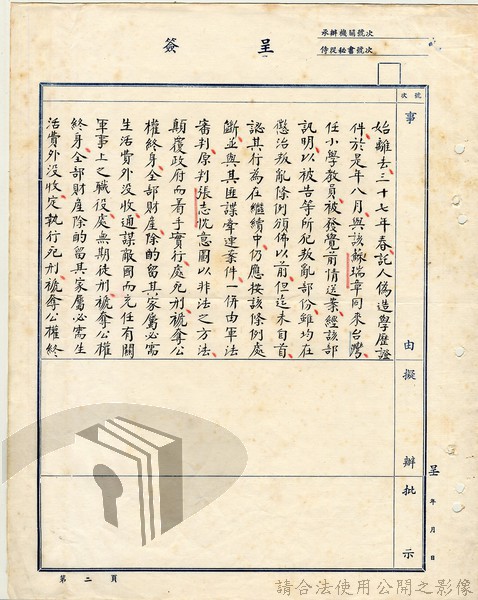 簽呈
承辦機關號次
侍從秘書號次
號次
事由
擬辦
批示
始離去三十七年春託人偽造學歷證
件於是年八月與該蘇瑞章同來台灣
任小學教員被發覺前情送案經該部
訊明以被告等所犯叛亂部份雖均在
懲治叛亂條例頒佈以前但迄未自首
認其行為在繼續中仍應按該條例處
斷並與其匪諜牽連案件一併由軍法
審判原判張志忱意圖以非法之方法
顛覆政府而著手實行處死刑褫奪公
權終身全部財產除酌留其家屬必需
生活費外沒收通謀敵國而充任有關
軍事上之職役處無期徒刑褫奪公權
終身全部財產除酌留其家屬必需生
活費外沒收定執行死刑褫奪公權終
呈 年 月 日
第二頁
請合法使用公開之影像